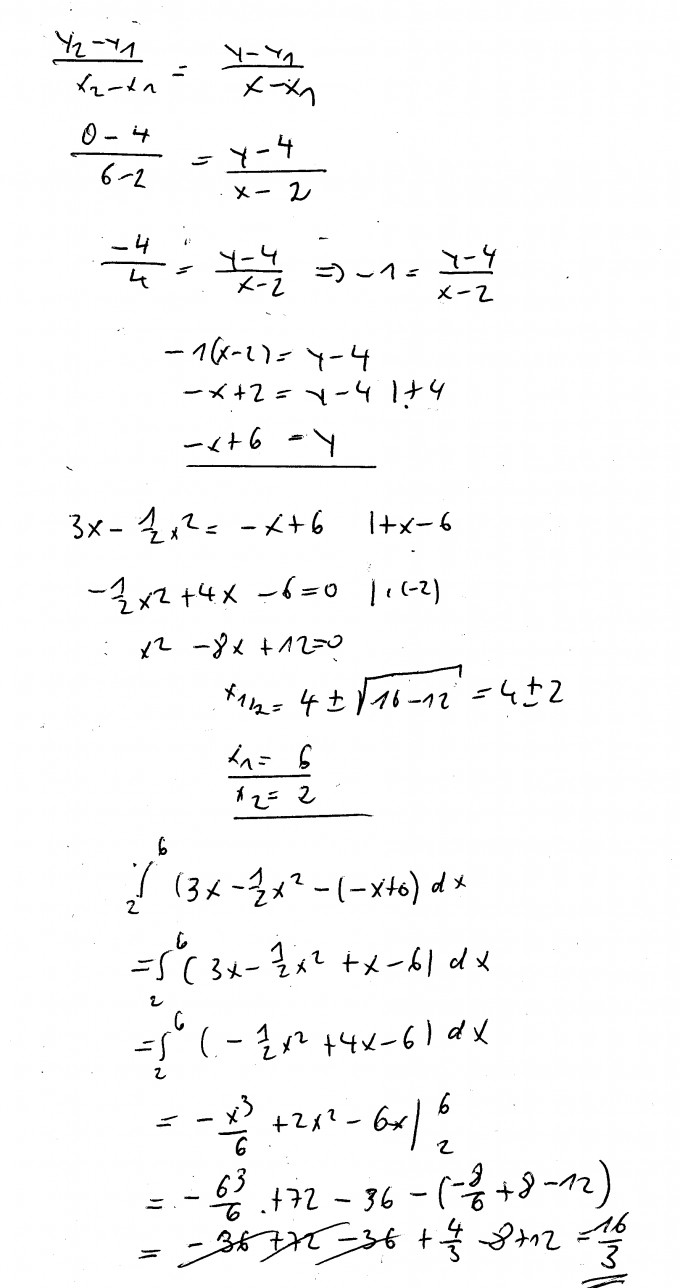 (y₂-y₁)/(x₂-x₁) = (y-y₁)/(x-x₁)
(0-4)/(6-2) = (y-4)/(x-2)
-4/4 = (y-4)/(x-2) ⇒ -1 = (y-4)/(x-2)
-1(x-2) = y-4
-x+2 = y-4 |+4
-x+6 = y
3x - 1/2 x² = -x+6 |+x-6
-1/2 x² + 4x - 6 = 0 |·(-2)
x² - 8x + 12 = 0
x₁/₂ = 4 ± √(16-12) = 4 ± 2
x₁ = 6
x₂ = 2
₂∫⁶ (3x - 1/2 x² - (-x+6) dx
= ₂∫⁶ (3x - 1/2 x² + x - 6) dx
= ₂∫⁶ (-1/2 x² + 4x - 6) dx
= -x³/6 + 2x² - 6x |₂⁶
= -6³/6 + 72 - 36 - (-8/6 + 8 - 12)
= -36 + 72 - 36 + 4/3 - 8 + 12 = 16/3